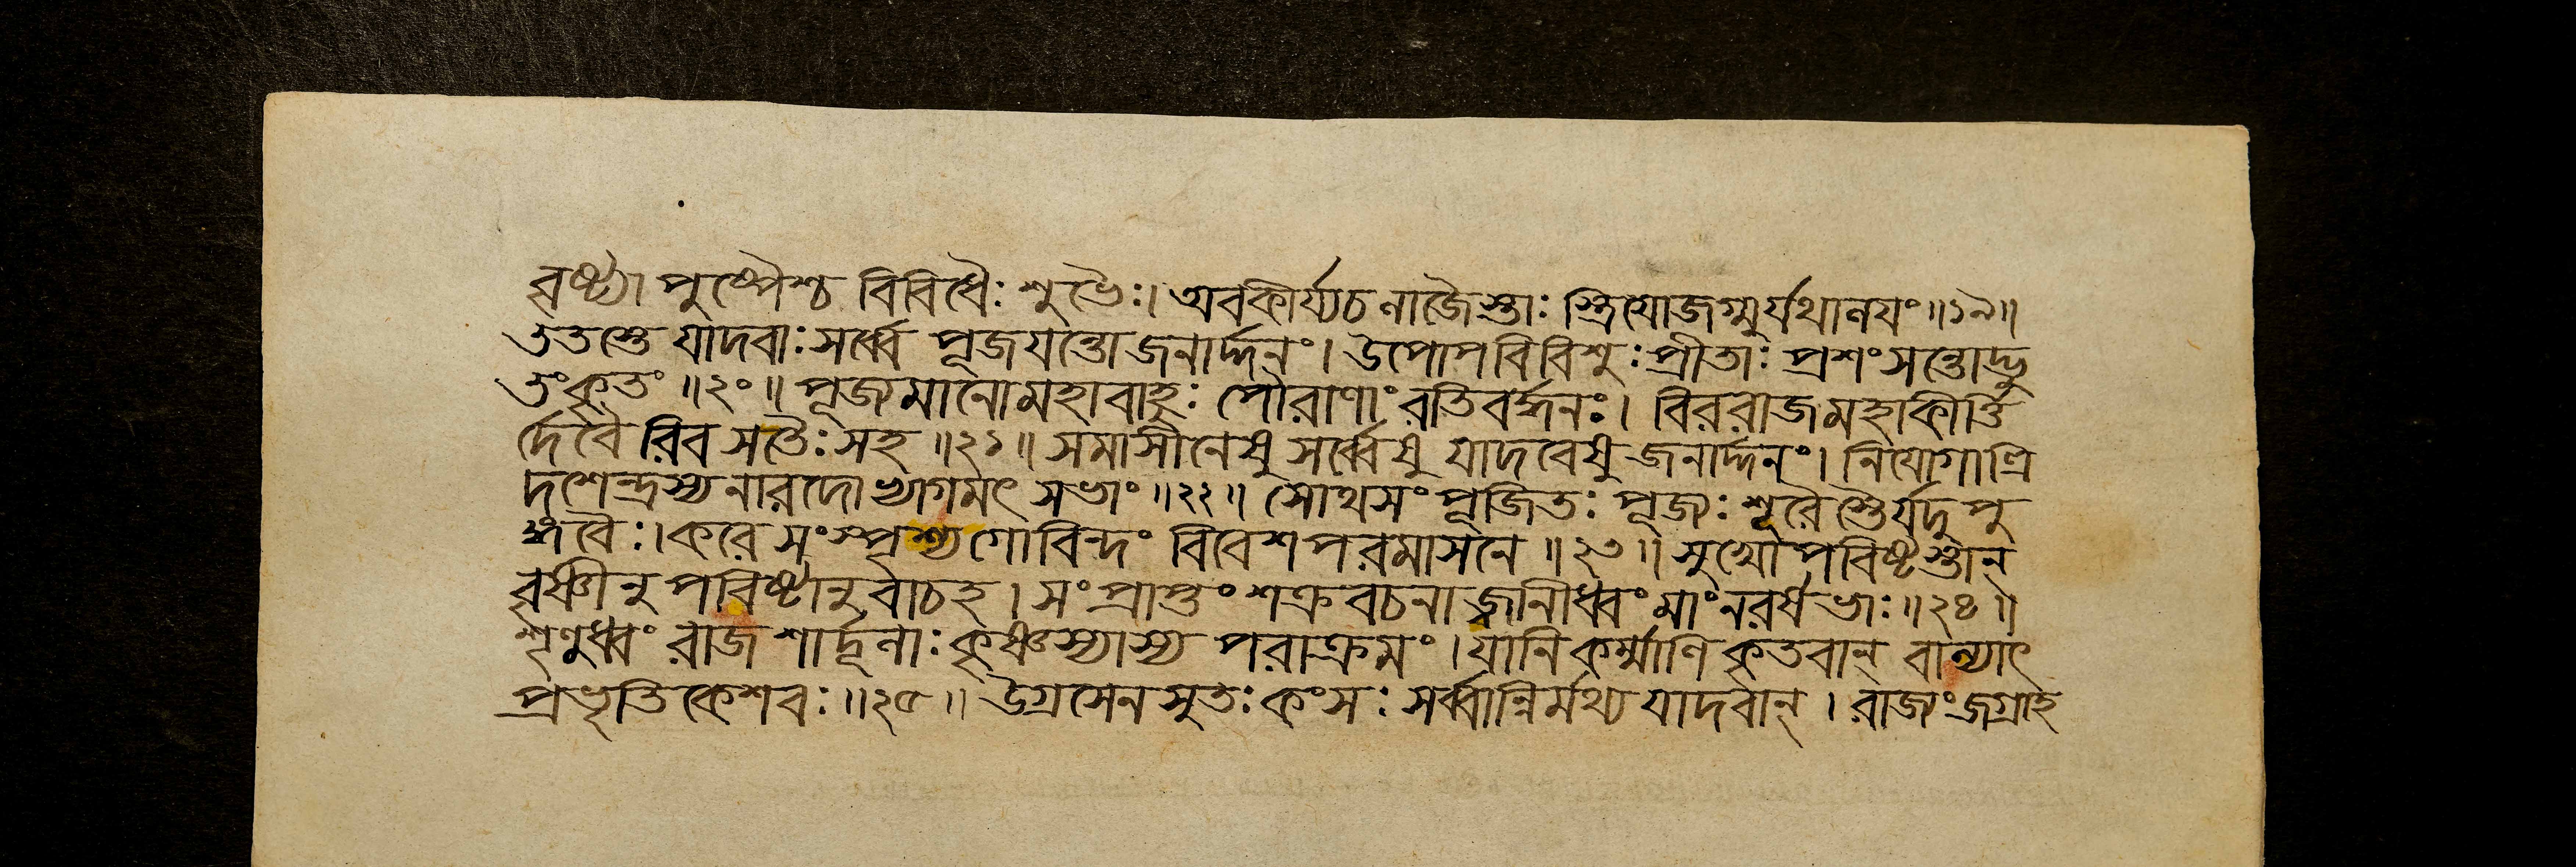 বৃষ্ট্যা পুষ্পৈশ্চ বিবিধৈঃ শুভৈঃ। অবকীর্য্যচ লাজৈস্তাঃ স্ত্রিযোজগ্মুর্যথালযং॥১৯॥
ততস্তে যাদবাঃ সর্ব্বে পূজযন্তো জনার্দ্দনং। উপোপবিবিশুঃ প্রীতাঃ প্রশংসন্তোদ্ভু
তংকৃতং॥২০॥ পূজ্যমানোমহাবাহুঃ পৌরাণাং রতিবর্দ্ধনঃ। বিররাজমহাকীর্ত্তি
র্দেবৈ রিব সতৈঃ সহ॥২১॥ সমাসীনেষু সর্ব্বেষু যাদবেষু জনার্দ্দনং। নিযোগাত্ত্রি
দশেন্দ্রস্য নারদোভ্যাগমৎ সভাং॥২২॥ সোথসং পূজিতঃ পূজ্যঃ শূরৈ স্তৈর্যদু পু
ঙ্গবৈঃ। করে সংস্পৃশ্য গোবিন্দং বিবেশপরমাসনে॥২৩॥ সুখোপবিষ্টস্তান্
বৃষ্ণীনু পবিষ্টানুবাচহ। সং প্রাপ্তং শক্রবচনা জ্জানীধ্বং মাং নরর্ষভাঃ॥২৪॥
শৃণুধ্বং রাজ শার্দ্দূলাঃ কৃষ্ণস্যাস্য পরাক্রমং। যানি কর্ম্মাণি কৃতবান্ বাল্যাৎ
প্রভৃতি কেশবঃ॥২৫॥ উগ্রসেন সুতঃ কংসঃ সর্ব্বান্নির্মথ্য যাদবান্। রাজ্যং জগ্রাহ